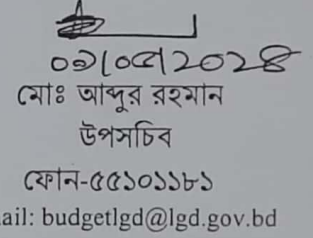 ০৯/০৫/২০২৪
মোঃ আব্দুর রহমান
উপসচিব
ফোন-৫৫১০১১৮১
ail: budgetlgd@lgd.gov.bd